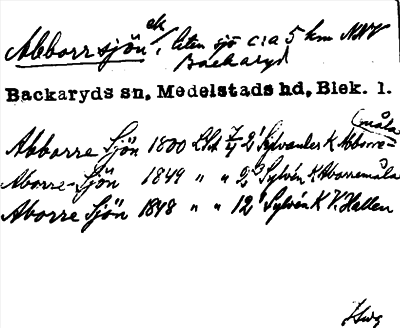 Abborrsjön ek/ liten sjö c:a 5 km NNV
Backaryd
Backaryds sn, Medelstads hd, Blek. l.
måla
Abborre Sjön 1800 LSt 7/4 2 Sylvander K Abborre-
Aborre-Sjön 1849 " " 2 Sylvén K Aborremåla
Aborre Sjön 1848 " " 12 Sylvén K V. Hallen